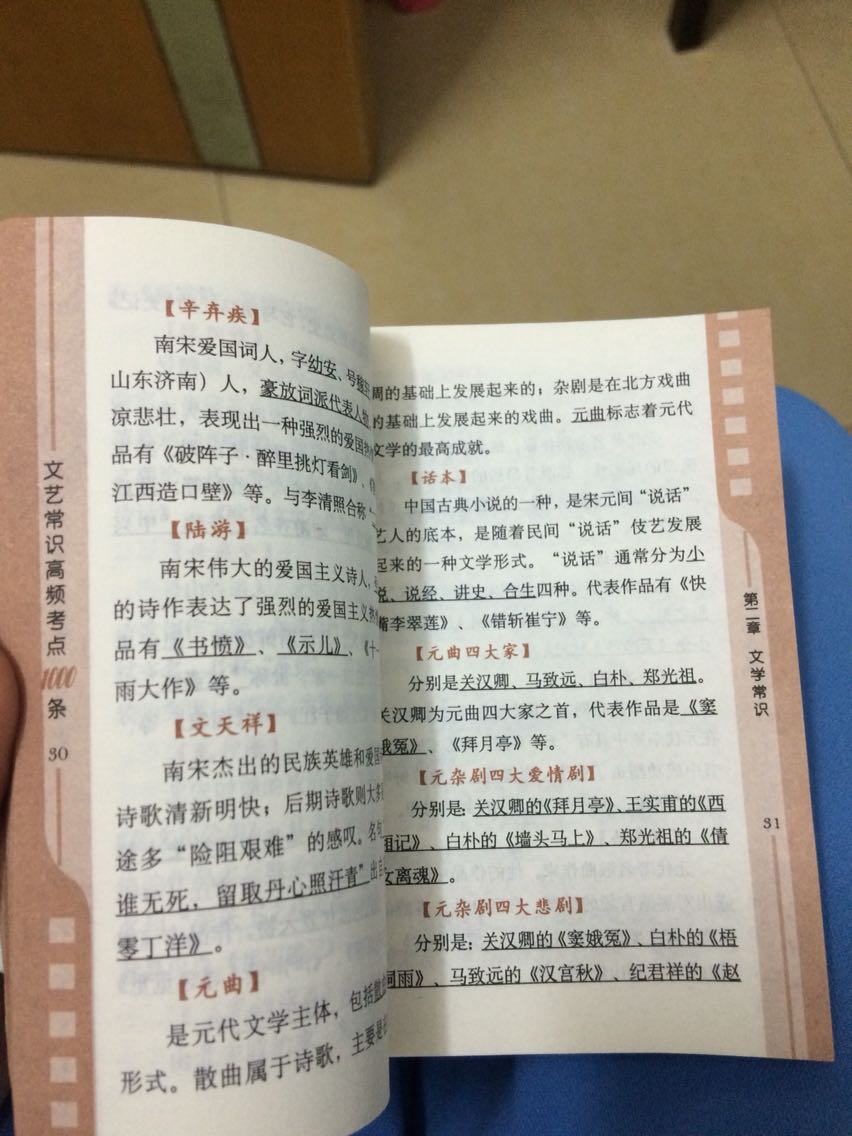 【辛弃疾】
南宋爱国词人，字幼安、号
山东济南）人，豪放词派代表人
凉悲壮，表现出一种强烈的爱国
品有《破阵子·醉里挑灯看剑》、
江西造口壁》等。与李清照合称
【陆游】
南宋伟大的爱国主义诗人，
的诗作表达了强烈的爱国主义
品有《书愤》、《示儿》、《十一
雨大作》等。
【文天祥】
南宋杰出的民族英雄和爱国
诗歌清新明快；后期诗歌则大多
途多“险阻艰难”的感叹。名句
谁无死，留取丹心照汗青”出自
零丁洋》。
【元曲】
是元代文学主体，包括散
形式。散曲属于诗歌，主要是
文艺常识高频考点1000条
30
周的基础上发展起来的；杂剧是在北方戏曲
的基础上发展起来的戏曲。元曲标志着元代
文学的最高成就。
【话本】
中国古典小说的一种，是宋元间“说话”
艺人的底本，是随着民间“说话”伎艺发展
起来的一种文学形式。“说话”通常分为小
说、说经、讲史、合生四种。代表作品有《快
嘴李翠莲》、《错斩崔宁》等。
【元曲四大家】
分别是关汉卿、马致远、白朴、郑光祖。
关汉卿为元曲四大家之首，代表作品是《窦
娥冤》、《拜月亭》等。
【元杂剧四大爱情剧】
分别是：关汉卿的《拜月亭》、王实甫的《西
厢记》、白朴的《墙头马上》、郑光祖的《倩
女离魂》。
【元杂剧四大悲剧】
分别是：关汉卿的《窦娥冤》、白朴的《梧
桐雨》、马致远的《汉宫秋》、纪君祥的《赵
第二章 文学常识
31